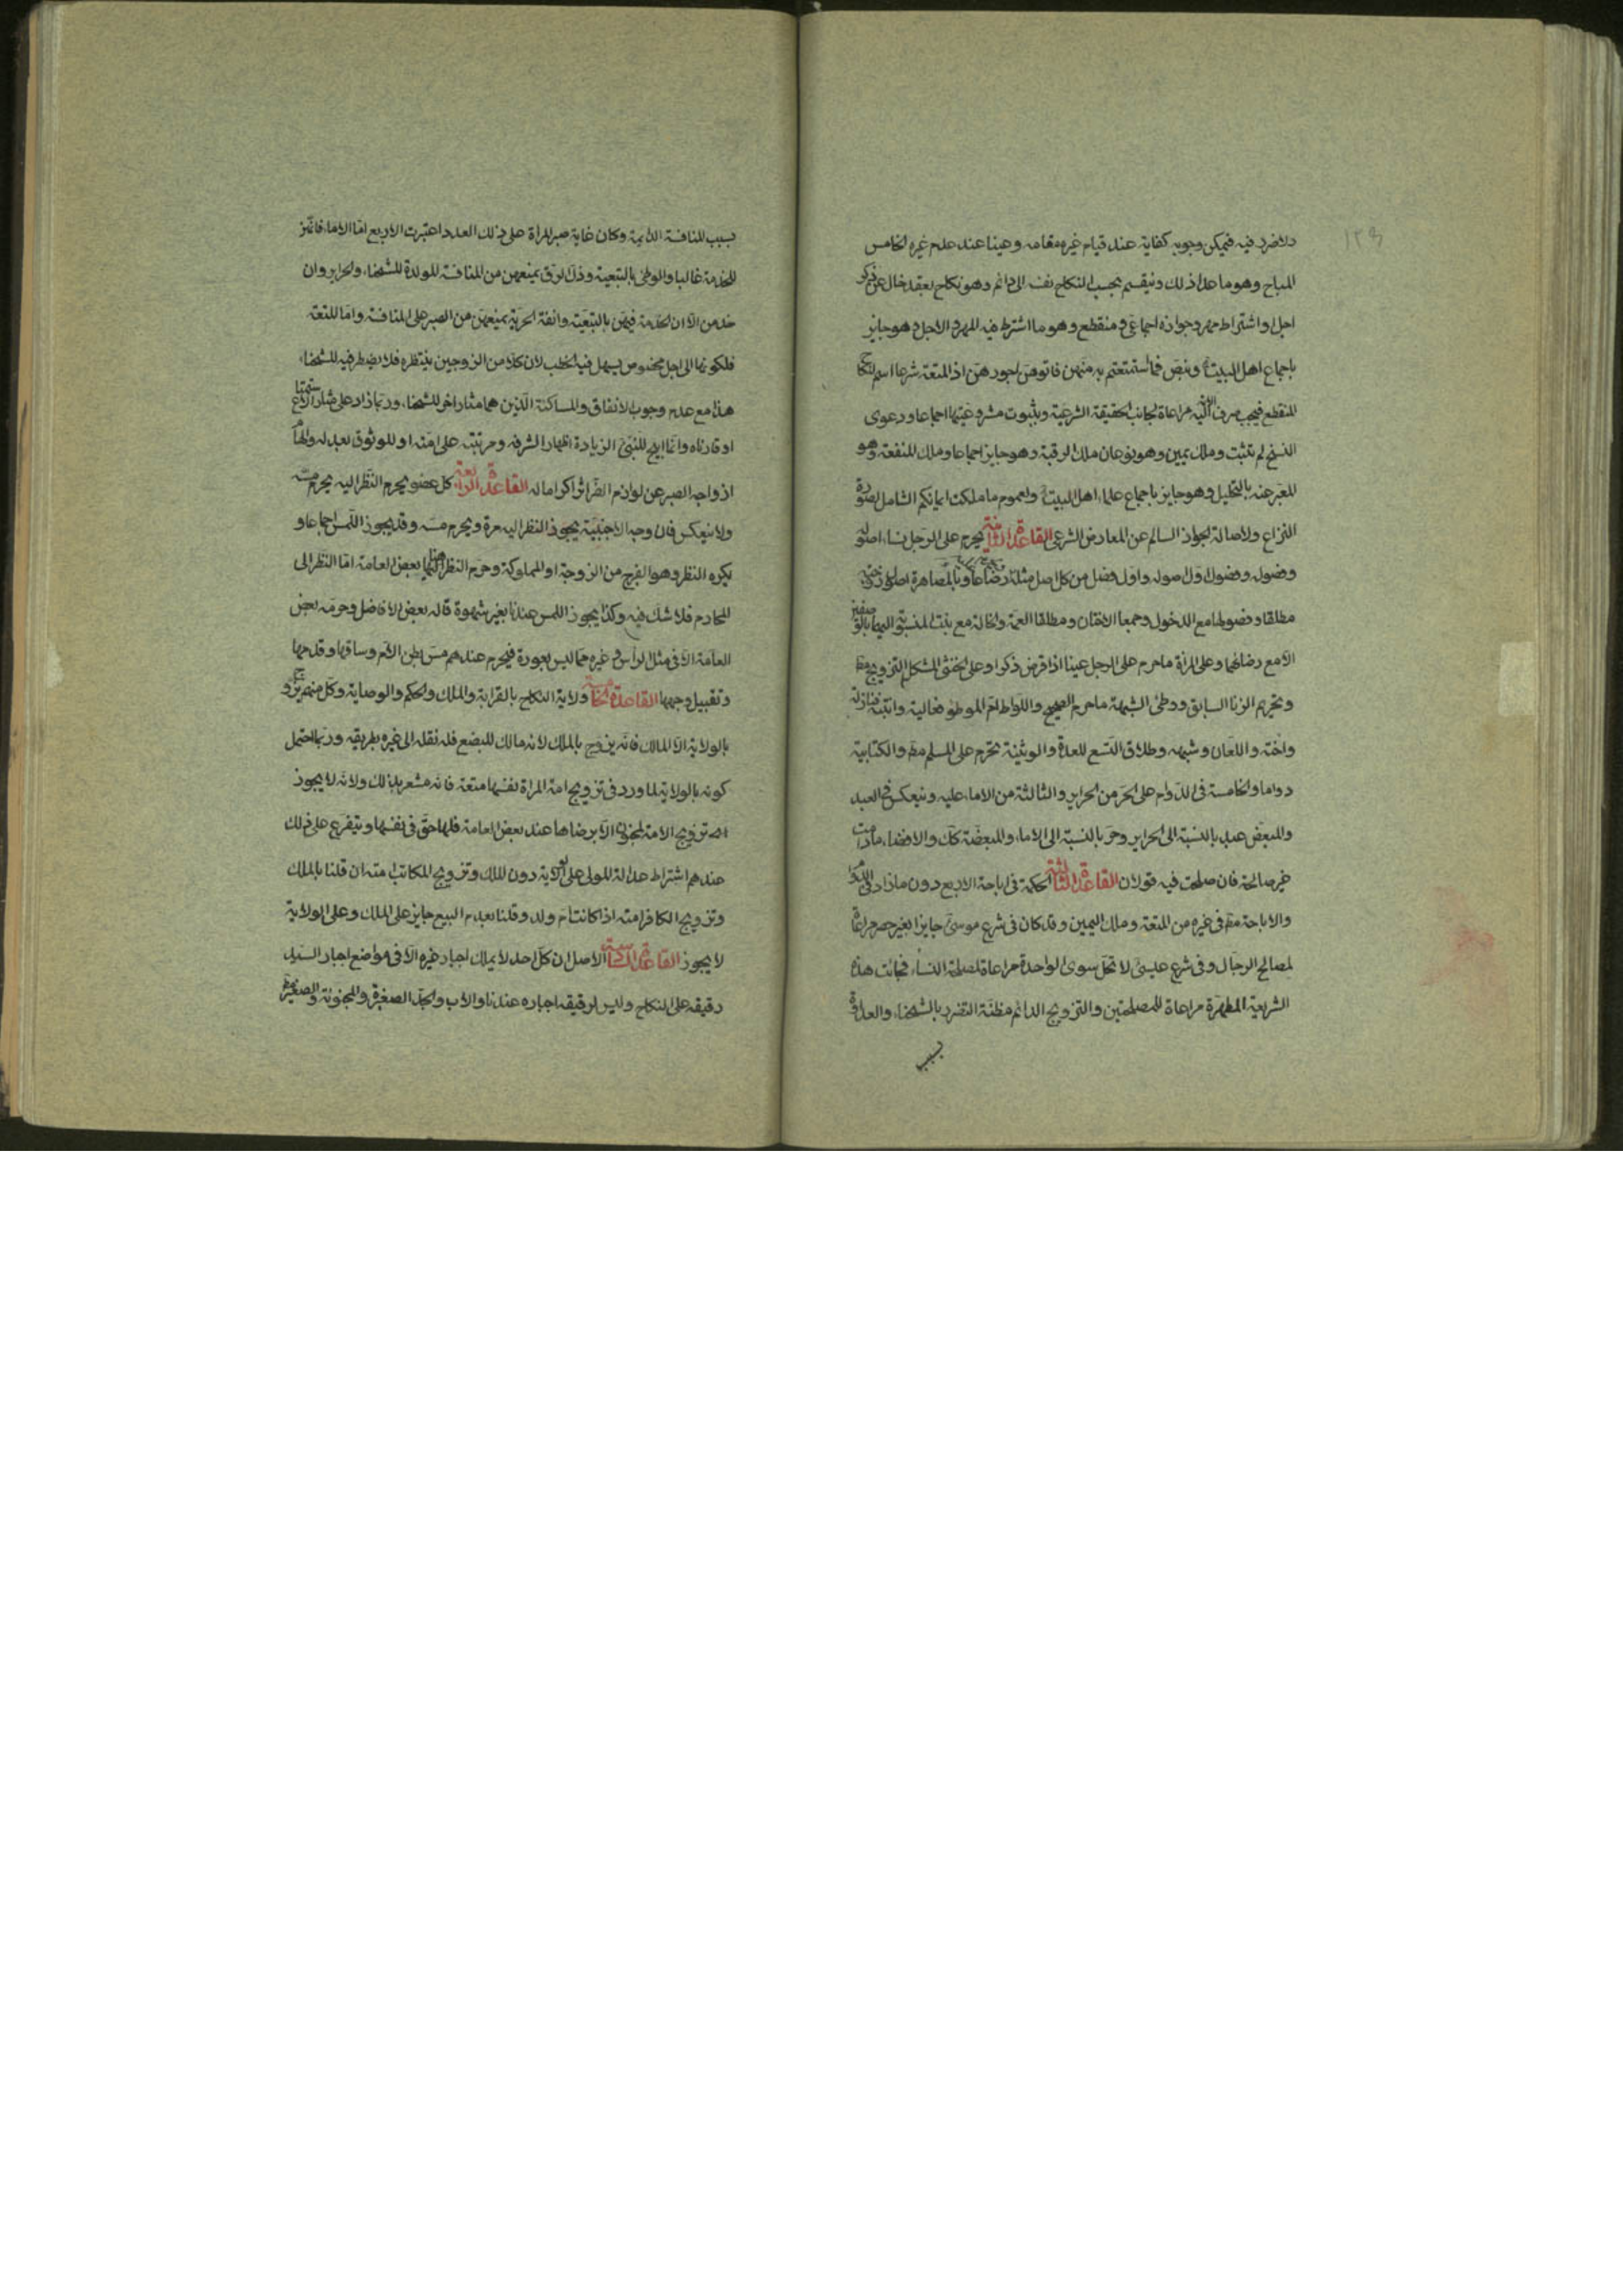 ١٢٩
ولا ضرر فيه فيمكن وجوبه كفاية عند قيام غيره مقامه وعينا عند عدم غيره الخامس
المباح وهو ما عدا ذلك وينقسم بحسب النكاح نفسه الى دائم وهو نكاح بعقد خال عن ذكر
اجل واشتراط مهر وجوازه اجماعى ومنقطع وهو ما اشترط فيه المهر والاجل وهو جايز
باجماع اهل البيت ع ونص فما استمتعتم به منهن فاتوهن اجورهن اذ المتعة شرعا اسم للنكاح
المنقطع فيجب صرف الاية اليه مراعاة لجانب الحقيقة الشرعية وبثبوت مشروعيتها اجماعا ودعوى
النسخ لم تثبت وملك يمين وهو نوعان ملك الرقبة وهو جايز اجماعا وملك المنفعة وهو
المعبر عنه بالتحليل وهو جايز باجماع علماء اهل البيت ع ولعموم ما ملكت ايمانكم الشامل لصورة
النزاع ولاصالة الجواز السالم عن المعارض الشرعى القاعدة الثانية يحرم على الرجل نسبا اصوله
وفصوله وفصول اول اصوله واول فصل من كل اصل مثله رضاعا وبالمصاهرة اصول زوجته
مطلقا وفصولها مع الدخول وجمعا الاختان ومطلقا العمة والخالة مع بنت المنسوبة اليهما بالوصفين
الا مع رضاهما وعلى المراة ما حرم على الرجل عينا اذا فرض ذكرا وعلى الخنثى المشكل التزويج مط
وتحريم الزنا السابق ووطئ الشبهة ما حرم الصحيح واللواط ام الموطوء فعالية وابنته فنازلة
واخته واللعان وشبهه وطلاق التسع للعدة والوثنية تحرم على المسلم مط والكتابية
دواما والخامسة فى الدوام على الحر من الحراير والثالثة من الاماء عليه وينعكس فى العبد
والمبعض عبد بالنسبة الى الحراير وحر بالنسبة الى الاماء والمبعضة كك والافضاء ما دامت
غير صالحة فان صلحت فيه قولان القاعدة الثالثة الحكمة فى اباحة الاربع دون ما زاد فى الدوام
والاباحة مط فى غيره من المتعة وملك اليمين وقد كان فى شرع موسى ع جايزا بغير حصر مراعاة
لمصالح الرجال وفى شرع عيسى ع لا تحل سوى الواحدة مراعاة لمصلحة النساء فجائت هذه
الشريعة المطهرة مراعاة للمصلحتين والتزويج الدائم مظنة التضرر بالشحناء والعداوة
بسبب
بسبب المنافسة الدائمة وكان غاية صبر المراة على ذلك العدد اعتبرت الاربع اما الاماء فانهن
للخدمة غالبا والوطى بالتبعية وذل الرق يمنعهن من المنافسة المولدة للشحناء والحراير وان
خدمن الا ان الخدمة فيهن بالتبعية وانفة الحرية تمنعهن من الصبر على المنافسة واما المتعة
فلكونها الى اجل مخصوص يسهل فيه الخطب لان كلا من الزوجين ينتظره فلا يضطر فيه للشحناء
هذا مع عدم وجوب الانفاق والمساكنة الذين هما مثار اخر للشحناء وربما زاد على مثار الاستمتاع
او قارناه وانما ابيح للنبى ص الزيادة اظهارا لشرفه ومرتبته على امته او للوثوق بعدله والهام
ازواجه الصبر عن لوازم الضراير اكراما له القاعدة الرابعة كل عضو يحرم النظر اليه يحرم مسه
ولا ينعكس فان وجه الاجنبية يجوز النظر اليه مرة ويحرم مسه وقد يجوز اللمس اجماعا و
يكره النظر وهو الفرج من الزوجة او المملوكة وحرم النظر اليها بعض العامة اما النظر الى
المحارم فلا شك فيه وكذا يجوز اللمس عندنا بغير شهوة قاله بعض الافاضل وحرمه بعض
العامة الا فى مثل الراس وغيره مما ليس بعورة فيحرم عندهم مس بطن الام وساقها وقدمها
وتقبيل وجهها القاعدة الخامسة ولاية النكاح بالقرابة والملك والحكم والوصاية وكل منهم يزوج
بالولاية الا المالك فانه يزوج بالملك لانه مالك للبضع فله نقله الى غيره بطريقه وربما احتمل
كونه بالولاية لما ورد فى تزويج امة المراة نفسها متعة فانه مشعر بذلك ولانه لا يجوز
تزويج الامة الا برضاها عند بعض العامة فلها حق فى نفسها ويتفرع على ذلك
عندهم اشتراط عدالة المولى على الولاية دون الملك وتزويج المكاتب امته ان قلنا بالملك
وتزويج الكافر امته اذا كانت ام ولد وقلنا بعدم البيع جايز على الملك وعلى الولاية
لا يجوز القاعدة السادسة الاصل ان كل احد لا يملك اجبار غيره الا فى مواضع اجبار السيد
رقيقه على النكاح وليس لرقيقه اجباره عندنا والاب والجد الصغيرة والمجنونة والصغير مط